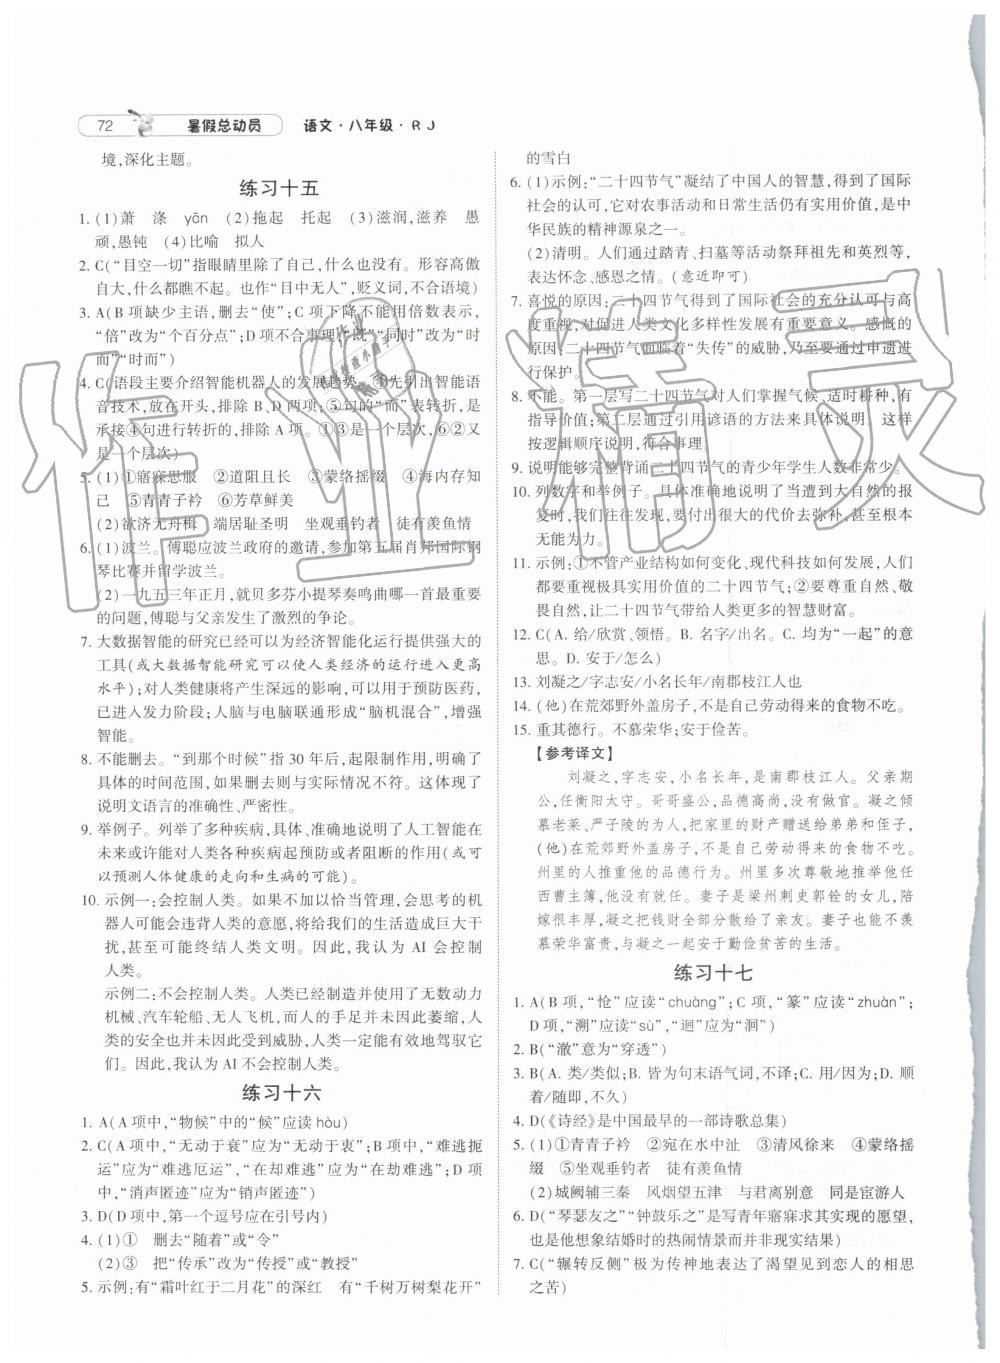 72
暑假总动员
语文·八年级·RJ
境,深化主题。
练习十五
1. (1)萧 涤 yān (2)拖起 托起 (3)滋润,滋养 愚
顽,愚钝 (4)比喻 拟人
2. C(“目空一切”指眼睛里除了自己,什么也没有。形容高傲
自大,什么都瞧不起。也作“目中无人”,贬义词,不合语境)
3. A(B项缺少主语,删去“使”;C项下降不能用倍数表示,
“倍”改为“个百分点”;D项不合事理,“既”“同时”改为“时
而”“时而”)
4. C(语段主要介绍智能机器人的发展趋势。③先引出智能语
音技术,放在开头,排除B、D两项;⑤句的“而”表转折,是
承接④句进行转折的,排除A项。①③是一个层次,⑥②又
是一个层次)
5. (1)①寤寐思服 ②道阻且长 ③蒙络摇缀 ④海内存知
己 ⑤青青子衿 ⑥芳草鲜美
(2)欲济无舟楫 端居耻圣明 坐观垂钓者 徒有羡鱼情
6. (1)波兰。傅聪应波兰政府的邀请,参加第五届肖邦国际钢
琴比赛并留学波兰。
(2)一九五三年正月,就贝多芬小提琴奏鸣曲哪一首最重
要的问题,傅聪与父亲发生了激烈的争论。
7. 大数据智能的研究已经可以为经济智能化运行提供强大的
工具(或大数据智能研究可以使人类经济的运行进入更高
水平);对人类健康将产生深远的影响,可以用于预防医药,
已进入发力阶段;人脑与电脑联通形成“脑机混合”,增强
智能。
8. 不能删去。“到那个时候”指30年后,起限定作用,明确了
具体的时间范围,如果删去则与实际情况不符。这体现了
说明文语言的准确性、严密性。
9. 举例子。列举了多种疾病,具体、准确地说明了人工智能在
未来或许能对各种疾病起预防或者阻断的作用(或可
以预测人体健康的走向和生病的可能)。
10. 示例一:会控制人类。如果不加以恰当管理,会思考的机
器人可能会违背人类的意愿,将给我们的生活造成巨大干
扰,甚至可能终结人类文明。因此,我认为AI会控制
人类。
示例二:不会控制人类。人类已经制造并使用了无数动力
机械、汽车轮船、无人飞机,而人的手足并未因此萎缩,人
类的安全也并未因此受到威胁,人类一定能有效地驾驭它
们。因此,我认为AI不会控制人类。
练习十六
1. A(A项中,“物候”中的“候”应读hòu)
2. C(A项中,“无动于衰”应为“无动于衷”;B项中,“难逃扼
运”应为“难逃厄运”,“在却难逃”应为“在劫难逃”;D项
中,“消声匿迹”应为“销声匿迹”)
3. D(D项中,第一个逗号应在引号内)
4. (1)① 删去“随着”或“令”
(2)③ 把“传承”改为“传授”或“教授”
5. 示例:有“霜叶红于二月花”的深红 有“千树万树梨花开”
的雪白
6. (1)示例:“二十四节气”凝结了中国人的智慧,得到了国际
社会的认可,它对农事活动和日常生活仍有实用价值,是中
华民族的精神源泉之一。
(2)清明。人们通过踏青、扫墓等活动祭拜祖先和英烈等,
表达怀念、感恩之情。(意近即可)
7. 喜悦的原因:二十四节气得到了国际社会的充分认可与高
度重视,对促进人类文化多样性发展有重要意义。感慨的
原因:二十四节气面临着“失传”的威胁,乃至要通过申遗进
行保护。
8. 不能。第一层写二十四节气对人们掌握气候、适时耕种,有
导向价值;第二层通过引用谚语的方法来具体说明。这样
按逻辑顺序说明,符合事理。
9. 说明能够完整背诵二十四节气的青少年学生人数非常少。
10. 列数字和举例子。具体准确地说明了当遭到大自然的报
复时,我们往往发现,要付出很大的代价去弥补,甚至根本
无能为力。
11. 示例:①不管产业结构如何变化、现代科技如何发展,人们
都要重视极具实用价值的二十四节气;②要尊重自然、敬
畏自然,让二十四节气带给人类更多的智慧财富。
12. C(A. 给/欣赏、领悟。B. 名字/出名。C. 均为“一起”的意
思。D. 安于/怎么)
13. 刘凝之/字志安/小名长年/南郡枝江人也
14. (他)在荒郊野外盖房子,不是自己劳动得来的食物不吃。
15. 重其德行。不慕荣华;安于俭苦。
【参考译文】
刘凝之,字志安,小名长年,是南郡枝江人。父亲期
公,任衡阳太守。哥哥盛公,品德高尚,没有做官。凝之倾
慕老莱、严子陵的为人,把家里的财产赠送给弟弟和侄子,
(他)在荒郊野外盖房子,不是自己劳动得来的食物不吃。
州里的人推重他的品德行为。州里多次尊敬地推举他任
西曹主簿,他没有就任。妻子是梁州刺史郭铨的女儿,陪
嫁很丰厚,凝之把钱财全部分散给了亲友。妻子也能不羡
慕荣华富贵,与凝之一起安于勤俭贫苦的生活。
练习十七
1. A(B项,“怆”应读“chuàng”;C项,“篆”应读“zhuàn”;
D项,“溯”应读“sù”,“迴”应为“洄”)
2. B(“澈”意为“穿透”)
3. B(A. 类/类似;B. 皆为句末语气词,不译;C. 才/财;D. 顺
着/随即,不久)
4. D(《诗经》是中国最早的一部诗歌总集)
5. (1)①青青子衿 ②宛在水中沚 ③清风徐来 ④蒙络摇
缀 ⑤坐观垂钓者 徒有羡鱼情
(2)城阙辅三秦 风烟望五津 与君离别意 同是宦游人
6. D(“琴瑟友之”“钟鼓乐之”是写青年寤寐求其实现的愿望,
也是他想象结婚时的热闹情景而并非现实结果)
7. C(“辗转反侧”极为传神地表达了渴望见到恋人的相思
之苦)
作业精灵